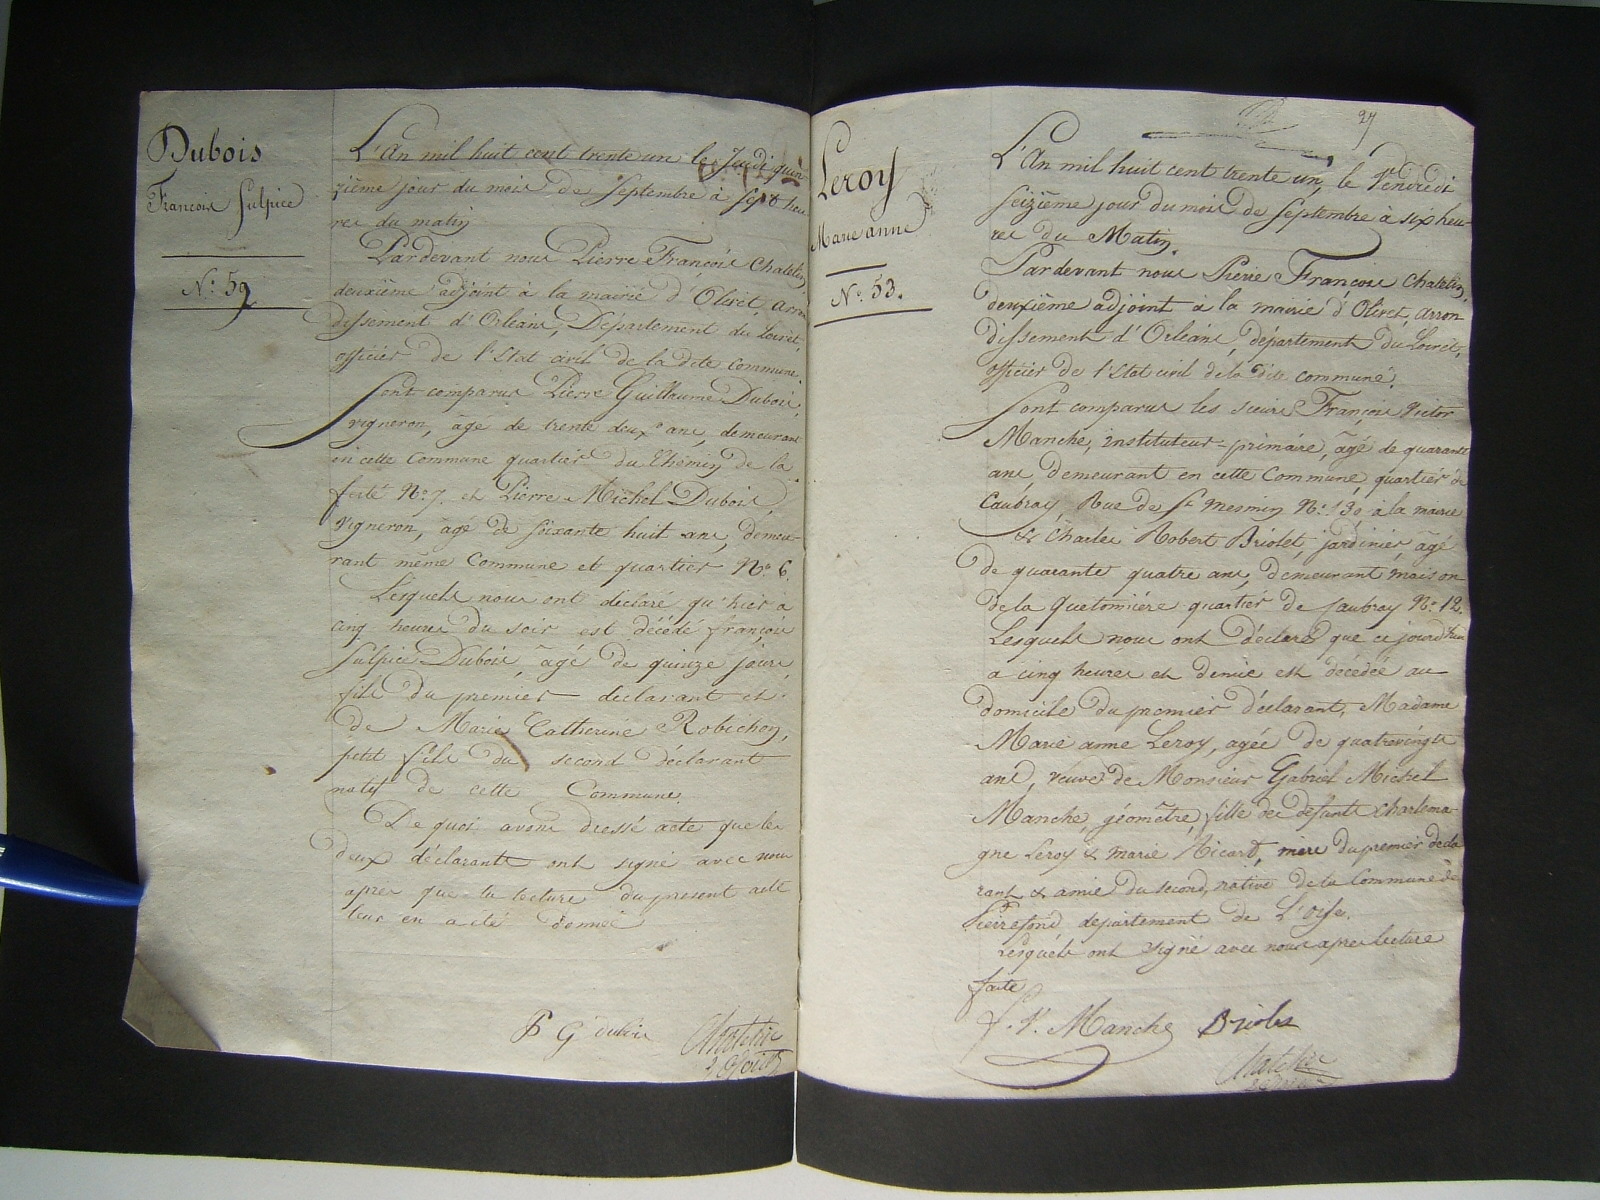 Dubois
François Sulpice
N.° 59
L'An mil huit cent trente un le Jeudi quin
zième jour du mois de Septembre à Sept heu
res du matin
Pardevant nous Pierre François Chatelin
deuxième adjoint à la mairie d'Olivet, arron
dissement d'Orléans, Département du Loiret,
officier de l'Etat civil de la dite commune.
Sont comparus Pierre Guillaume Dubois,
vigneron, âgé de trente deux ans, demeurant
en cette Commune quartier du Chemin de la
ferté N.° 7. et Pierre Michel Dubois,
vigneron, âgé de soixante huit ans, demeu-
rant même Commune et quartier N.° 6.
Lesquels nous ont déclaré qu'hier à
cinq heures du soir est décédé françois
Sulpice Dubois, âgé de quinze jours,
fils du premier déclarant et
de Marie Catherine Robichon,
petit fils du second déclarant
natif de cette Commune.
De quoi avons dressé acte que les
deux déclarants ont signé avec nous
après que la lecture du présent acte
leur en a été donnée
P G dubois
Leroy
Marie anne
N.° 53.
27
L'An mil huit cent trente un, le Vendredi
seizième jour du mois de Septembre à six heu-
res du Matin.
Pardevant nous Pierre François Chatelin,
deuxième adjoint à la mairie d'Olivet, arron
dissement d'Orléans, département du Loiret,
officier de l'Etat civil de la dite commune.
Sont comparus les sieurs François Victor
Manche, instituteur primaire, âgé de quarante
ans, demeurant en cette Commune, quartier de
Caubray, Rue de St Mesmin N.° 130 à la mairie
& Charles Robert Briolet, jardinier, âgé
de quarante quatre ans, demeurant maison
de la quetonnière quartier de Caubray N.° 12.
Lesquels nous ont déclaré que ce jourd'hui
à cinq heures et demie est décédée au
domicile du premier déclarant, Madame
Marie anne Leroy, agée de quatrevingts
ans, veuve de Monsieur Gabriel Michel
Manche, géomètre, fille des défunts Charlema-
gne Leroy & marie Ricard, mère du premier décla
rant & amie du second, native de la Commune de
Pierrefond département de L'oise.
Lesquels ont signé avec nous après lecture
faite
f. V. Manche Briolet